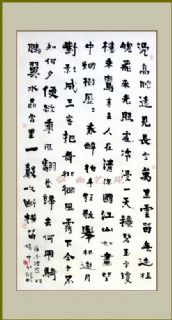 憑高眺遠見長空萬里雲無留迹桂
魄飛來光射處冷浸一天秋碧玉宇瓊
樓乘鸞來去人在清涼國江山如畫望
中烟樹歷歷我醉拍手狂歌舉杯邀月
對影成三客起舞徘徊風露下今夕不知
如何夕便欲乘風翻然歸去何用騎
鵬翼水晶宮里一聲吹斷橫笛